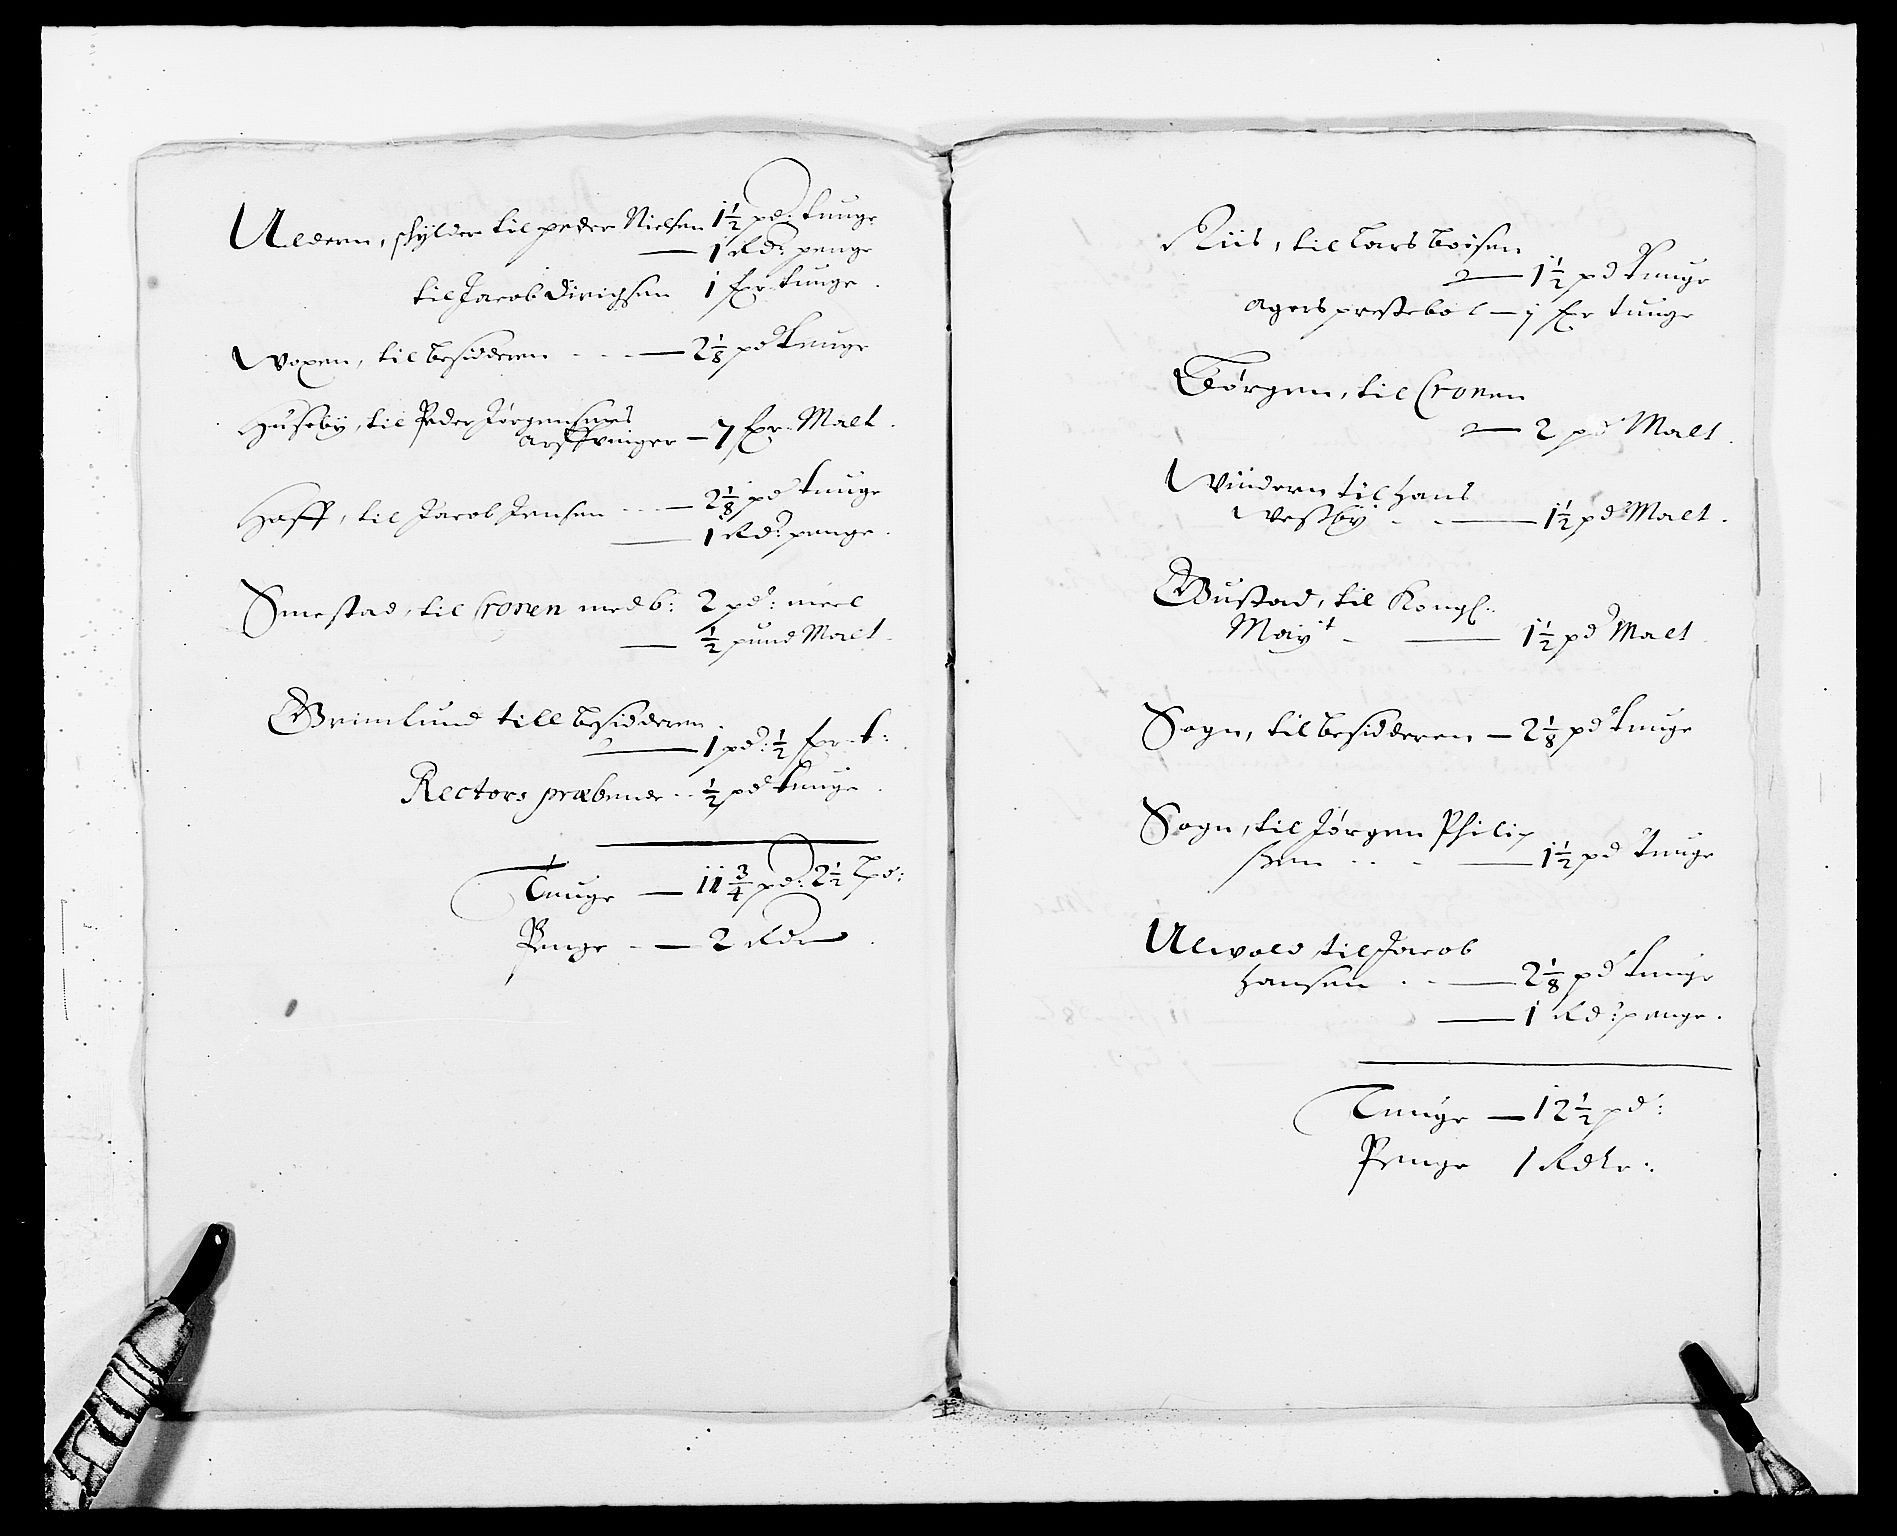 Uldern, skylder til peder Nielsen 1 1/2 pd: tunge
— 1 Rd: penge
til Jacob Dirichsen 1 fr tunge.
Woxen, til besidderen - - - — 2 1/8 pd tunge
Huseby, til Peder Jørgensens
arffvinger — 7 fr Malt.
Hoff, til Jacob Jensen - - — 2 1/8 pd tunge
— 1 Rd: penge.
Smestad, til Cronen med b: 2 pd: meel
— 1/2 pund Malt.
Grimlund till besidderen.
— 1 pd: 1/2 fr t:
Rectors præbende - - 1/2 pd tunge.
Tunge — 11 3/4 pd: 2 1/2 Lpd:
Penge - — 2 Rdr.
Riis, til Lars boisen
— 1 1/2 pd tunge
agers prestebol — 1 fr tunge
Børgen, til Cronen
— 2 pd Malt.
Windern til Hans
Westby - - — 1 1/2 pd Malt.
Gustad, til Kongl:
Mayt - — 1 1/2 pd Malt
Sogn, til besidderen — 2 1/8 pd tunge
Sogn, til Jørgen Philip
sen - - — 1 1/2 pd tunge
Ulwold, til Jacob
Hansen - - — 2 1/8 pd tunge
— 1 Rd: penge.
Tunge — 12 1/2 pd:
Penge 1 Rdlr: